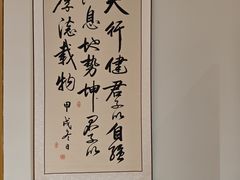 天行健君子以自强
息地势坤君子以
厚德載物
甲戌冬日